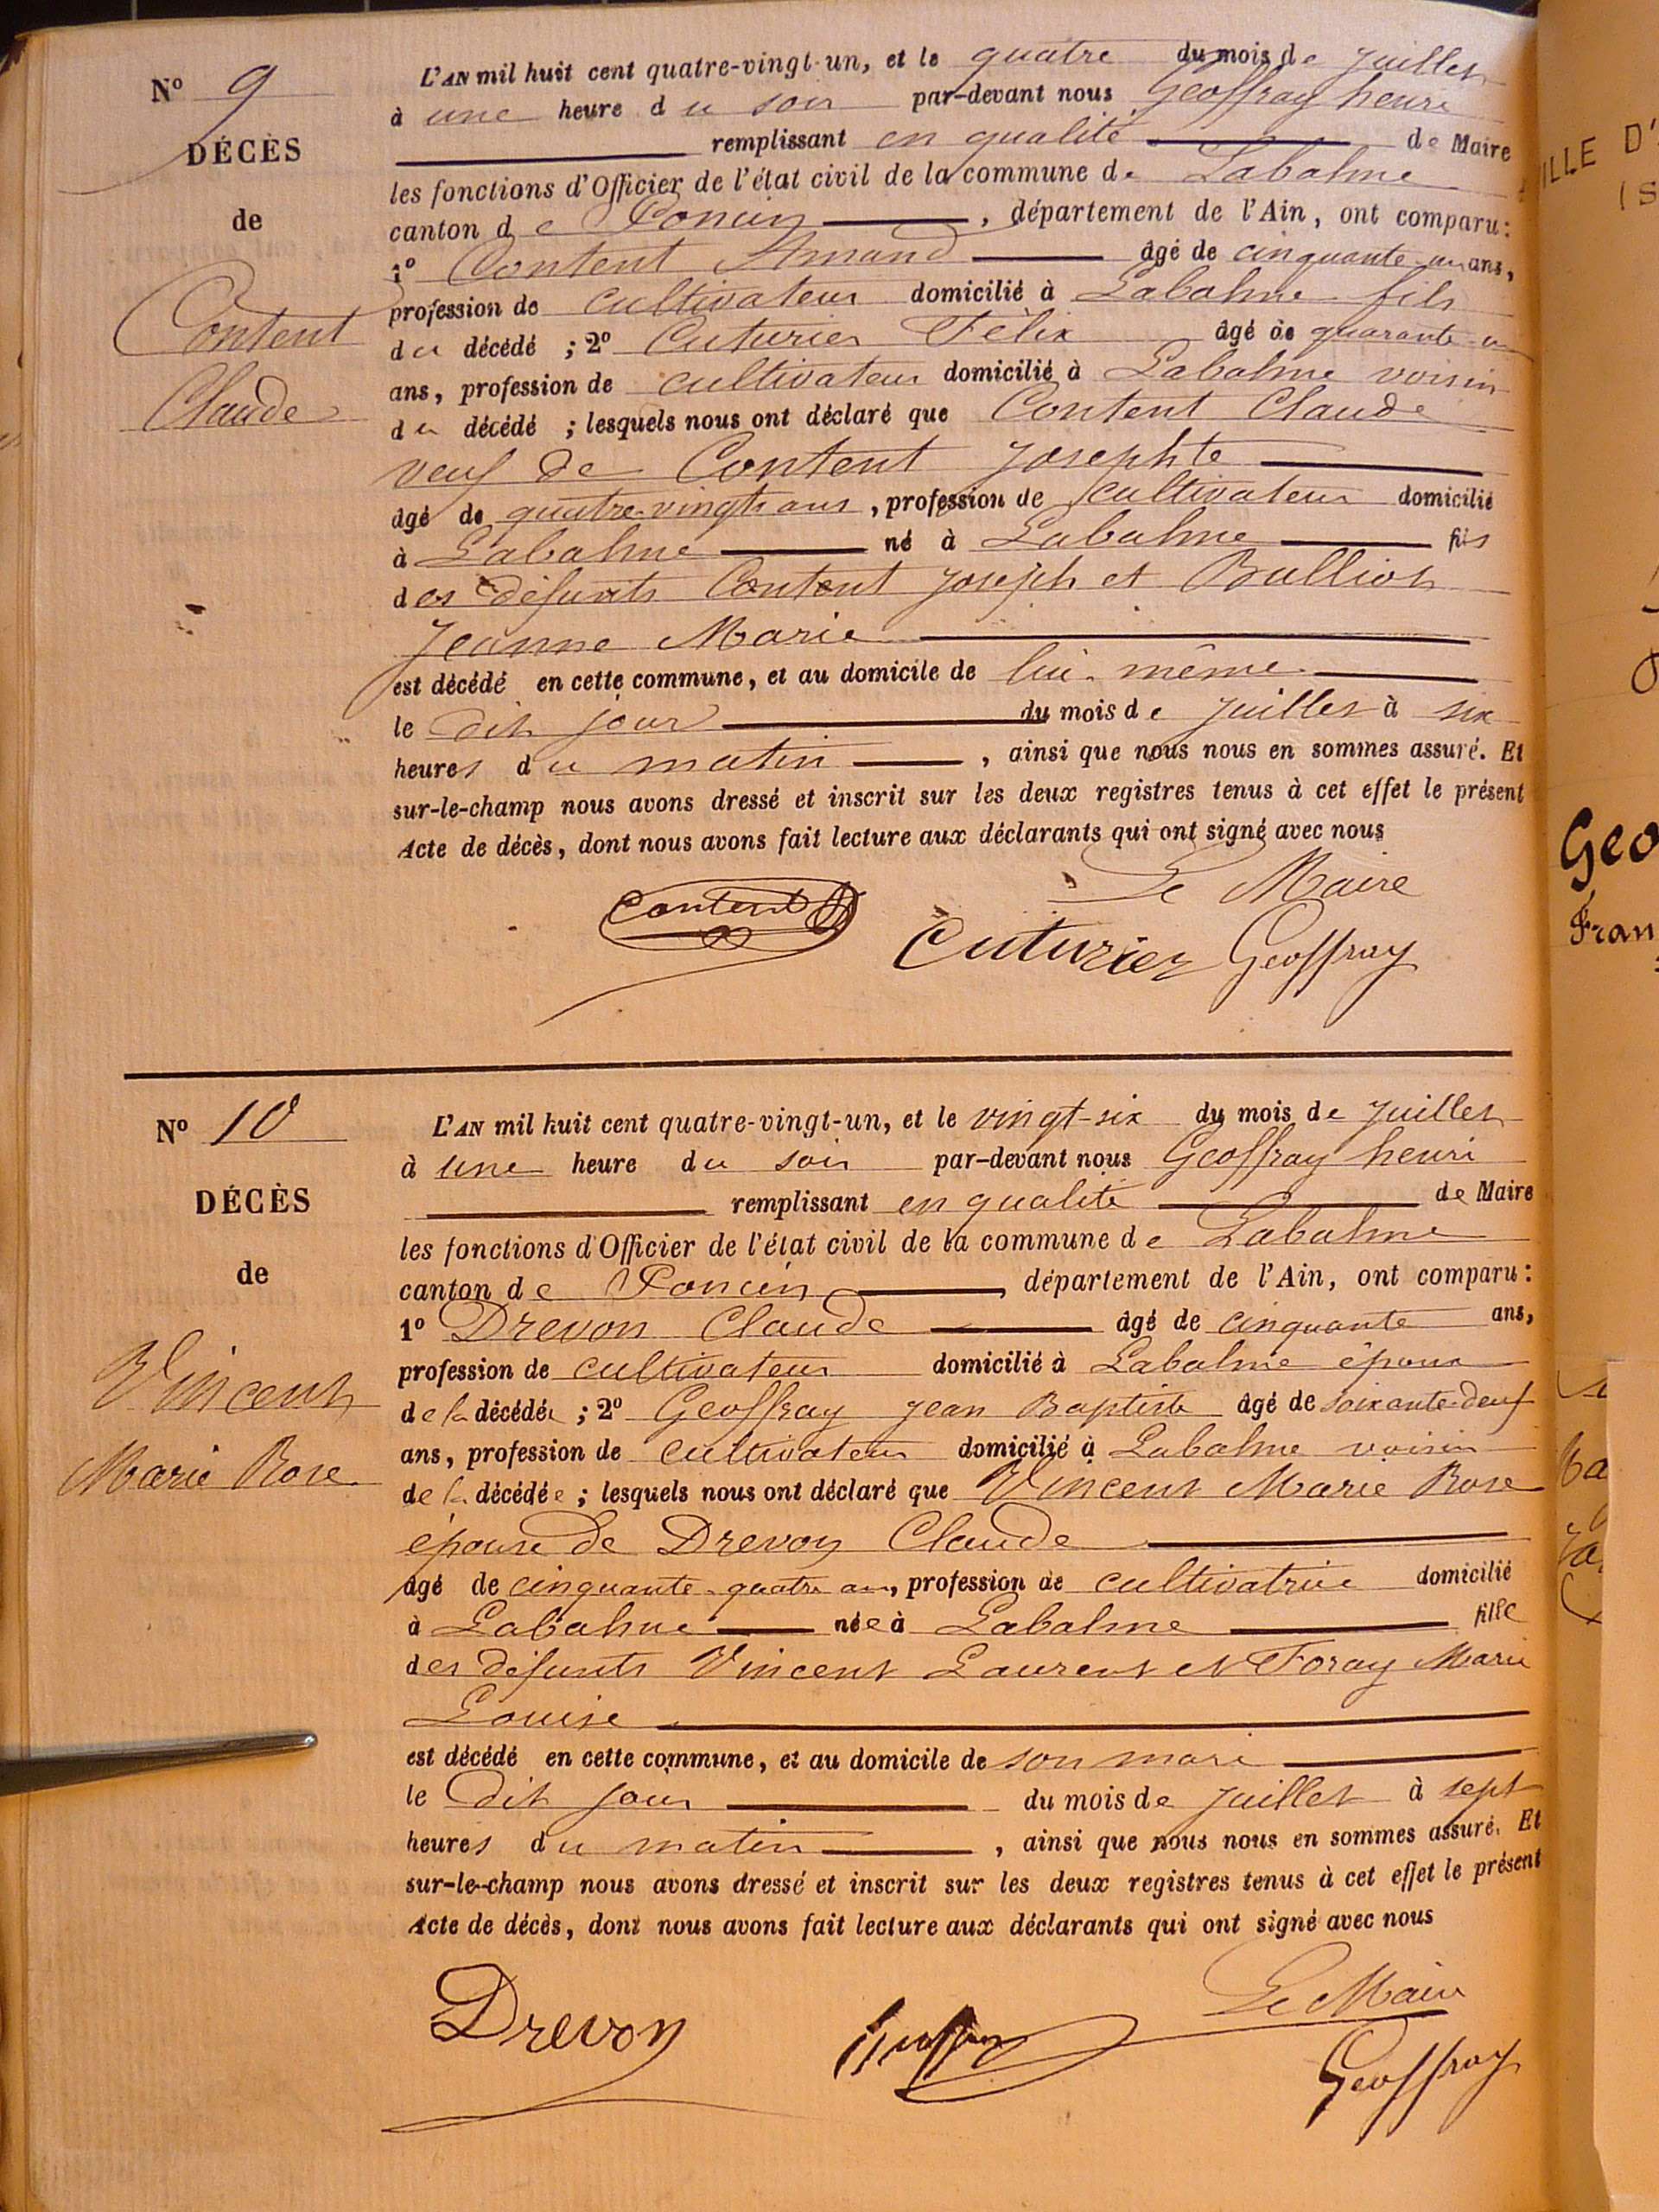 N° 9
DÉCÈS
de
Content
Claude
L'AN mil huit cent quatre-vingt-un, et le quatre du mois de Juillet
à une heure du soir par-devant nous Geoffray henri
remplissant en qualité de Maire
les fonctions d'Officier de l'état civil de la commune de Labalme
canton de Poncin, département de l'Ain, ont comparu:
1° Content Amand âgé de cinquante-un ans,
profession de cultivateur domicilié à Labalme fils
du décédé ; 2° Cuturier Félix âgé de quarante-un
ans, profession de cultivateur domicilié à Labalme voisin
du décédé ; lesquels nous ont déclaré que Content Claude
veuf de Content Josephte
âgé de quatre-vingts ans, profession de cultivateur domicilié
à Labalme né à Labalme fils
des défunts Content Joseph et Bullion
Jeanne Marie
est décédé en cette commune, et au domicile de lui-même
le dit jour du mois de Juillet à six
heures du matin, ainsi que nous nous en sommes assuré. Et
sur-le-champ nous avons dressé et inscrit sur les deux registres tenus à cet effet le présent
Acte de décès, dont nous avons fait lecture aux déclarants qui ont signé avec nous
Le Maire
Content
Cuturier Geoffray
N° 10
DÉCÈS
de
Vincent
Marie Rose
L'AN mil huit cent quatre-vingt-un, et le vingt-six du mois de Juillet
à une heure du soir par-devant nous Geoffray henri
remplissant en qualité de Maire
les fonctions d'Officier de l'état civil de la commune de Labalme
canton de Poncin, département de l'Ain, ont comparu:
1° Drevon Claude âgé de cinquante ans,
profession de cultivateur domicilié à Labalme époux
de la décédée ; 2° Geoffray Jean Baptiste âgé de soixante-deux
ans, profession de cultivateur domicilié à Labalme voisin
de la décédée ; lesquels nous ont déclaré que Vincent Marie Rose
épouse de Drevon Claude
âgé de cinquante-quatre ans, profession de cultivatrice domicilié
à Labalme née à Labalme fille
des défunts Vincent Laurent et Foray Marie
Louise
est décédé en cette commune, et au domicile de son mari
le dit jour du mois de Juillet à sept
heures du matin, ainsi que nous nous en sommes assuré. Et
sur-le-champ nous avons dressé et inscrit sur les deux registres tenus à cet effet le présent
Acte de décès, dont nous avons fait lecture aux déclarants qui ont signé avec nous
Le Maire
Drevon Geoffray
Geoffray
ILLE D'
Geo
Fran